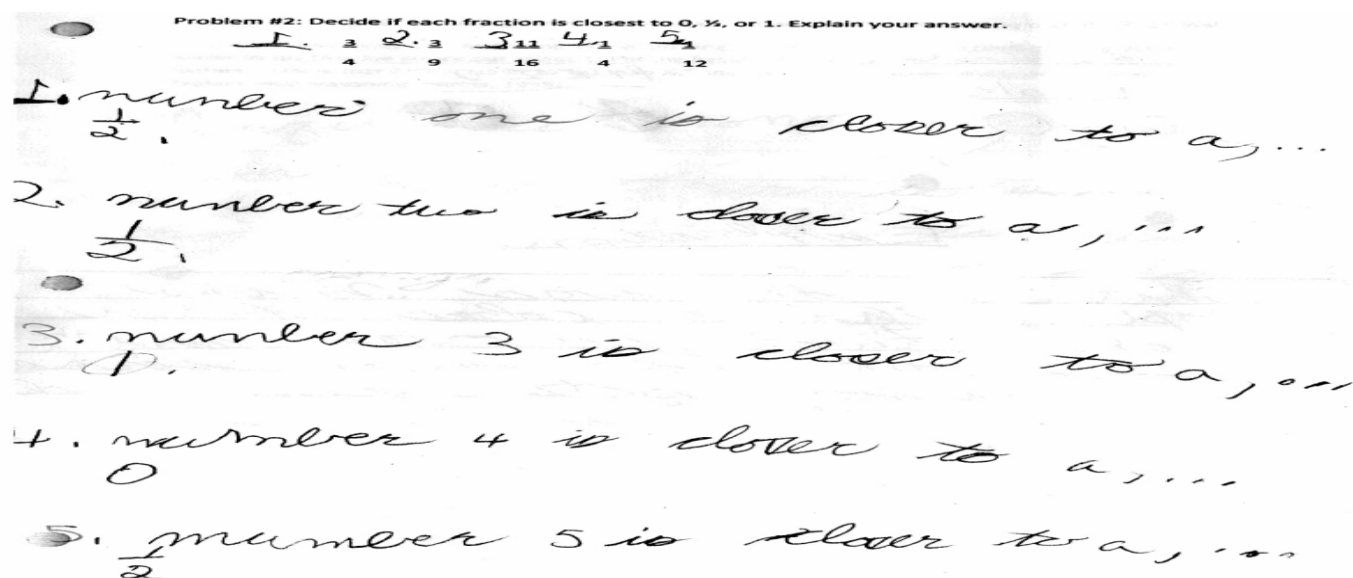 Problem #2: Decide if each fraction is closest to 0, ½, or 1. Explain your answer.
1. 3 2. 3 3 11 4. 1 5
4 9 16 4 12
1. number one is closer to a,...
1/2.
2. number two is closer to a,...
1/2.
3. number 3 is closer to a,...
1.
4. number 4 is closer to a,...
0
5. number 5 is closer to a,...
1/2